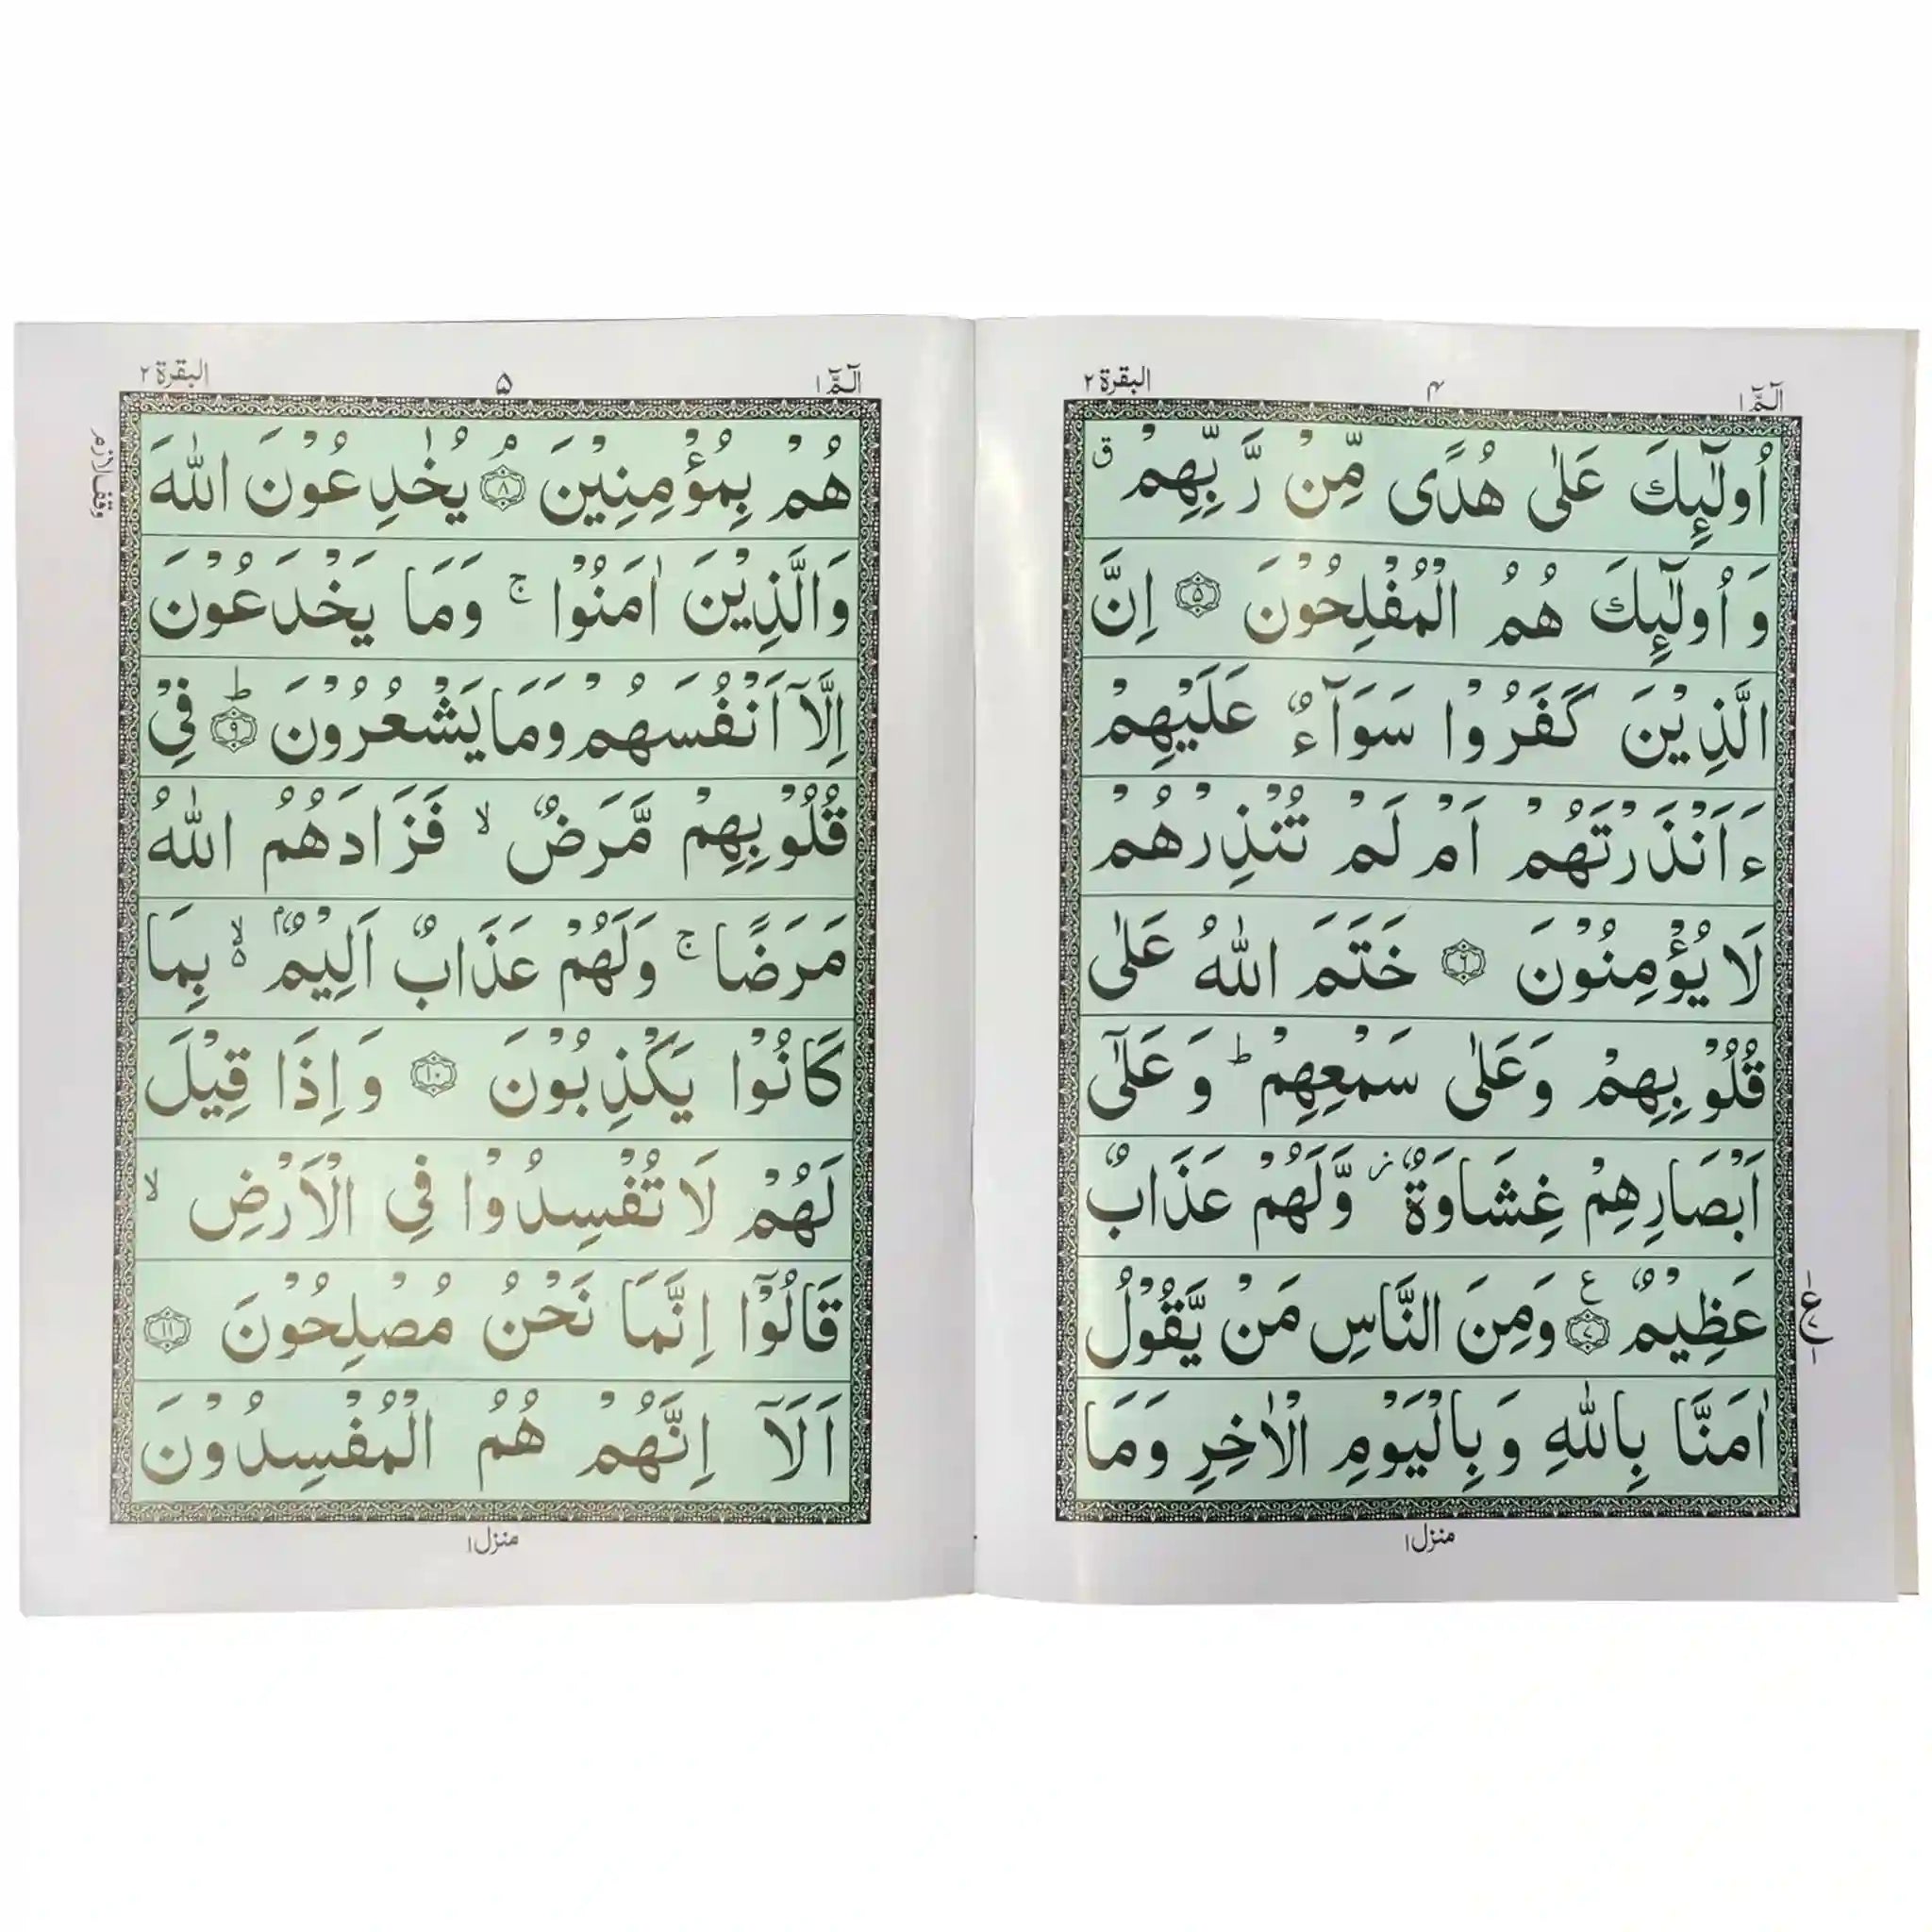 الٓمّٓ ١
۴
البقرة ٢
اُولٰٓئِكَ عَلٰى هُدًى مِّنْ رَّبِّهِمْ ۗ
وَ اُولٰٓئِكَ هُمُ الْمُفْلِحُوْنَ ۝۵ اِنَّ
الَّذِيْنَ كَفَرُوْا سَوَآءٌ عَلَيْهِمْ
ءَاَنْذَرْتَهُمْ اَمْ لَمْ تُنْذِرْهُمْ
لَا يُؤْمِنُوْنَ ۝۶ خَتَمَ اللّٰهُ عَلٰى
قُلُوْبِهِمْ وَعَلٰى سَمْعِهِمْ ؕ وَ عَلٰٓى
اَبْصَارِهِمْ غِشَاوَةٌ ز وَّلَهُمْ عَذَابٌ
عَظِيْمٌ ۝۷ ع وَمِنَ النَّاسِ مَنْ يَّقُوْلُ
اٰمَنَّا بِاللّٰهِ وَ بِالْيَوْمِ الْاٰخِرِ وَمَا
منزل ١
الٓمّٓ ١
۵
البقرة ٢
وقف لازم
هُمْ بِمُؤْمِنِيْنَ ۘ ۝۸ يُخٰدِعُوْنَ اللّٰهَ
وَالَّذِيْنَ اٰمَنُوْا ۚ وَمَا يَخْدَعُوْنَ
اِلَّآ اَنْفُسَهُمْ وَمَا يَشْعُرُوْنَ ؕ ۝۹ فِيْ
قُلُوْبِهِمْ مَّرَضٌ ۙ فَزَادَهُمُ اللّٰهُ
مَرَضًا ۚ وَلَهُمْ عَذَابٌ اَلِيْمٌۢ ۙ۬ بِمَا
كَانُوْا يَكْذِبُوْنَ ۝۱۰ وَ اِذَا قِيْلَ
لَهُمْ لَا تُفْسِدُوْا فِي الْاَرْضِ ۙ
قَالُوْٓا اِنَّمَا نَحْنُ مُصْلِحُوْنَ ۝۱۱
اَلَآ اِنَّهُمْ هُمُ الْمُفْسِدُوْنَ
منزل ١